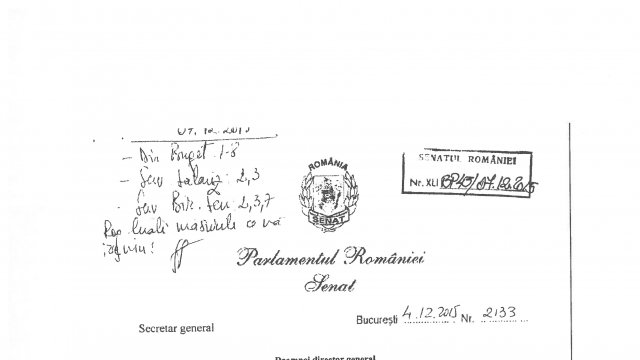 07.12.2015
- Dir Buget 1-8
- Serv Salariz: 2,3
- Serv Bir. Sen 2,3,7
Rog luati masurile ce vă
SENATUL ROMÂNIEI
Nr. XLI BP45/07.12.2015
ROMÂNIA
SENAT
Parlamentul României
Senat
București 4.12.2015 Nr. 2133
Secretar general
Doamnei director general